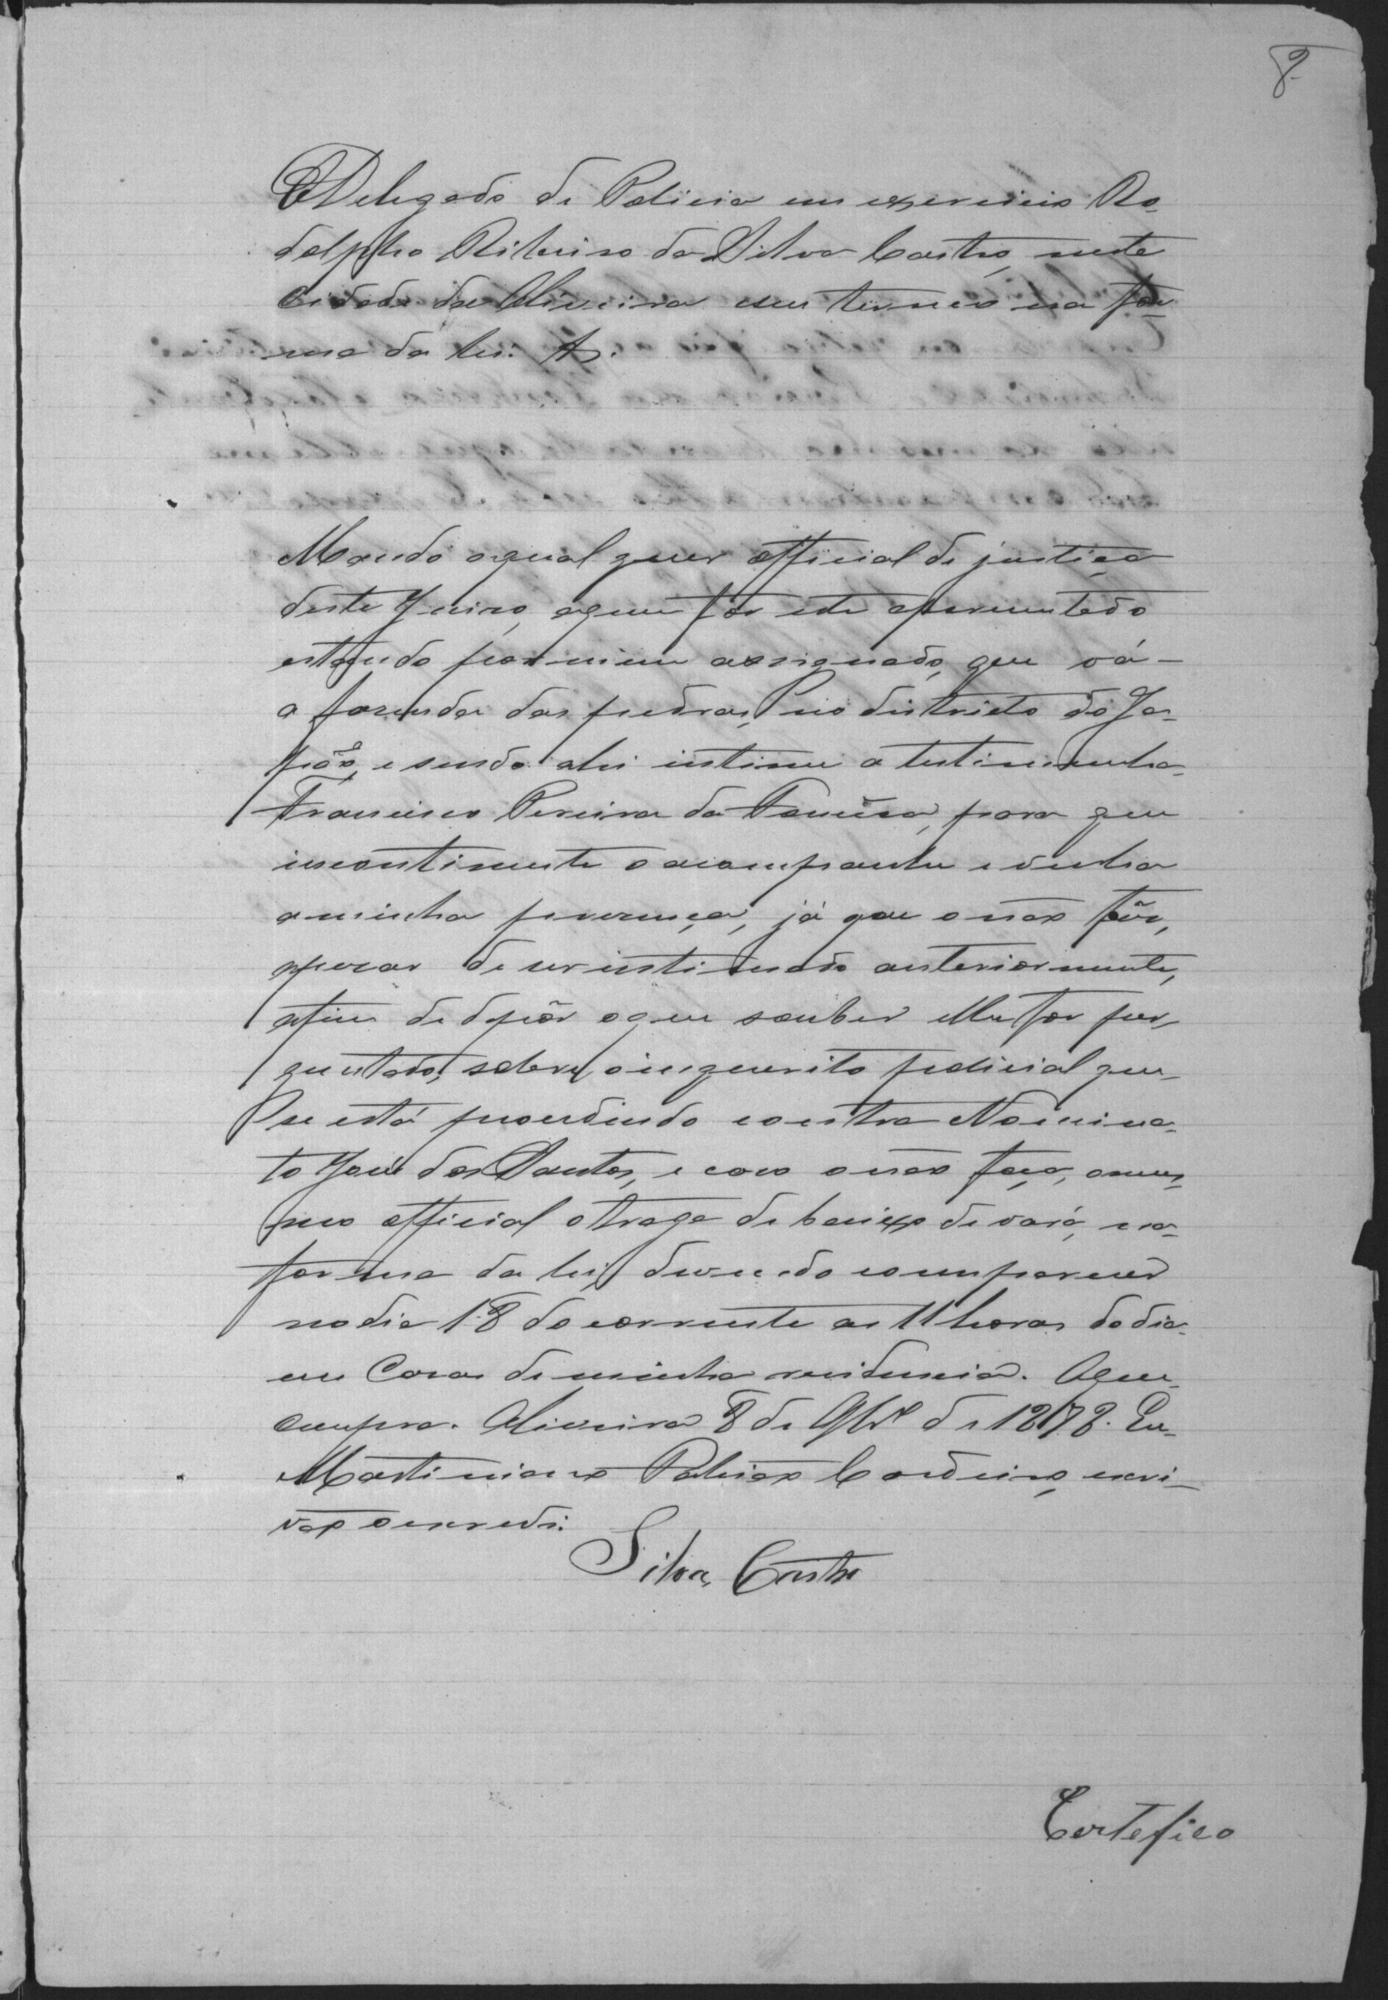 8
O Delegado de Policia em exercicio Ro-
dolpho Ribeiro da Silva Castro, nesta
Cidade da Oliveira e seu termo na for-
ma da lei. &.
Mando a qual quer official de justiça
deste Juizo, a quem fôr este apresentado
estando por mim assignado, que vá
a fazenda das pedras, no districto do Ja-
pão, e sendo ahi intime a testimunha
Francisco Pereira da Fonseca, para que
incontinente o acompanhe e venha
a minha presença, já que o não fêz,
apezar de ser intimado anteriormente,
afim de depôr o que souber e lhe for per-
guntado, sobre o inquerito policial que
se está procedendo contra Nomina-
to José dos Santos, e caso o não faça, o mes-
mo official o traga debaixo de vara, na
forma da lei, devendo comparecer
no dia 18 do corrente as 11 horas do dia
em Casa de minha residencia. O que
cumpra. Oliveira 8 de 9br.º de 1878. Eu
Martiniano Cordeiro, escri-
vão o escrevi.
Silva Castro
Certefico